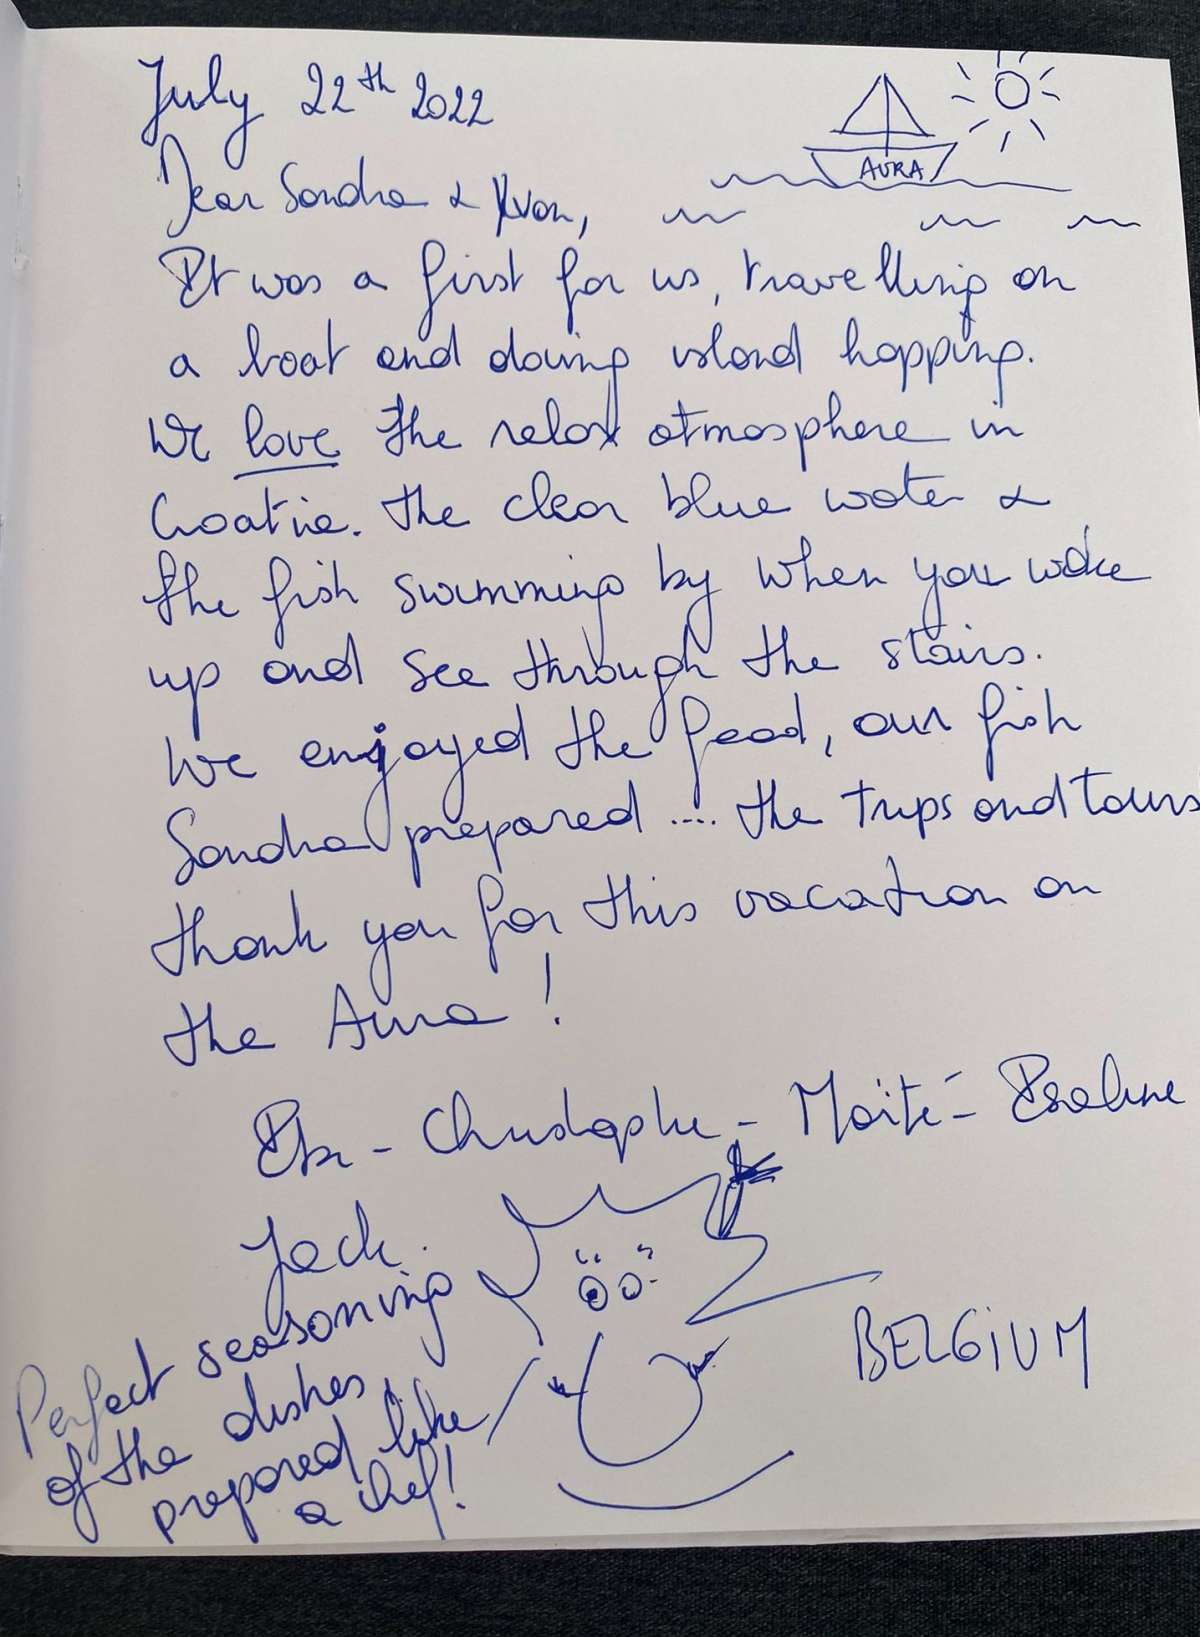 July 22th 2022
AURA
Dear Sandra & Yvon,
It was a first for us, travelling on
a boat and doing island hopping.
We love the relax atmosphere in
Croatie. The clear blue water &
the fish swimming by when you wake
up and see through the stairs.
We enjoyed the food, our fish
Sandra prepared .... the trips and tours
thank you for this vacation on
the Aura!
- Christophe - Maïté - Isaline
Jack.
Perfect seasoning
of the dishes,
prepared like
a chef!
BELGIUM